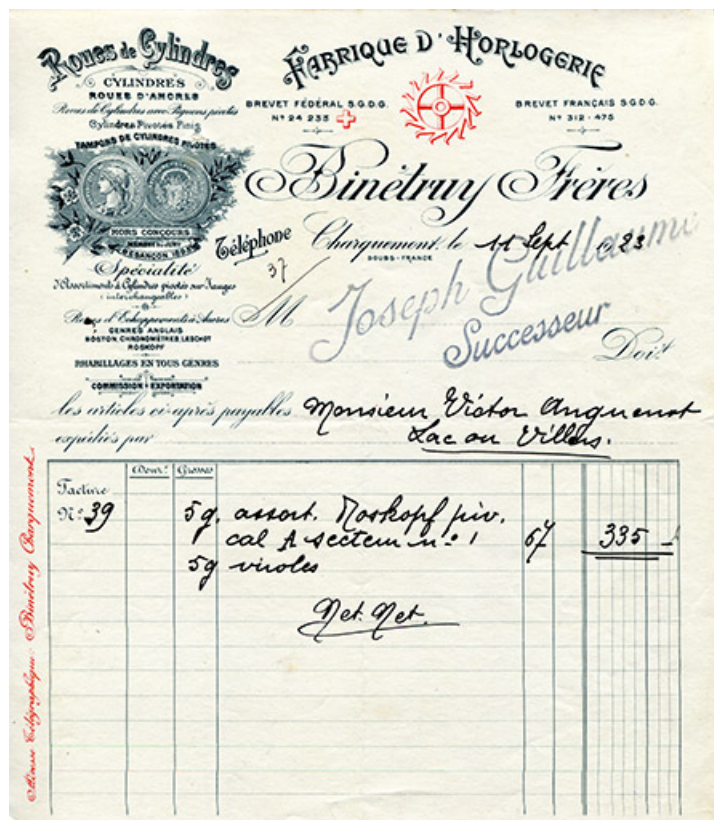 Roues de Cylindres
CYLINDRES
ROUES D'ANCRES
Roues de Cylindres avec Pignons pivotés
Cylindres Pivotés Finis
TAMPONS DE CYLINDRES PIVOTÉS
HORS CONCOURS
MEMBRE DU JURY
BESANÇON 1893
Spécialité
d'Assortiments à Cylindres pivotés sur Jauges
(interchangeables)
Roues d'Echappements à Ancres
GENRES ANGLAIS
BOSTON, CHRONOMÈTRES, LESCHOT
ROSKOPF
RHABILLAGES EN TOUS GENRES
COMMISSION - EXPORTATION
FABRIQUE D'HORLOGERIE
BREVET FÉDÉRAL S.G.D.G.
Nº 24 235
BREVET FRANÇAIS S.G.D.G.
Nº 312-475
Binétruy Frères
Téléphone
37
Charquemont, le 11 Sept 1923
DOUBS-FRANCE
M
Joseph Guillaume
Successeur
Doit
les articles ci-après payables Monsieur Victor Anguenot
expédiés par Lac ou Villers.
Douz. Grosses
Facture
Nº 39 5g. assort. Roskopf piv.
cal A secteur nº 1 67 335
5g viroles
Net. Net.
Adresse Télégraphique: Binétruy Charquemont